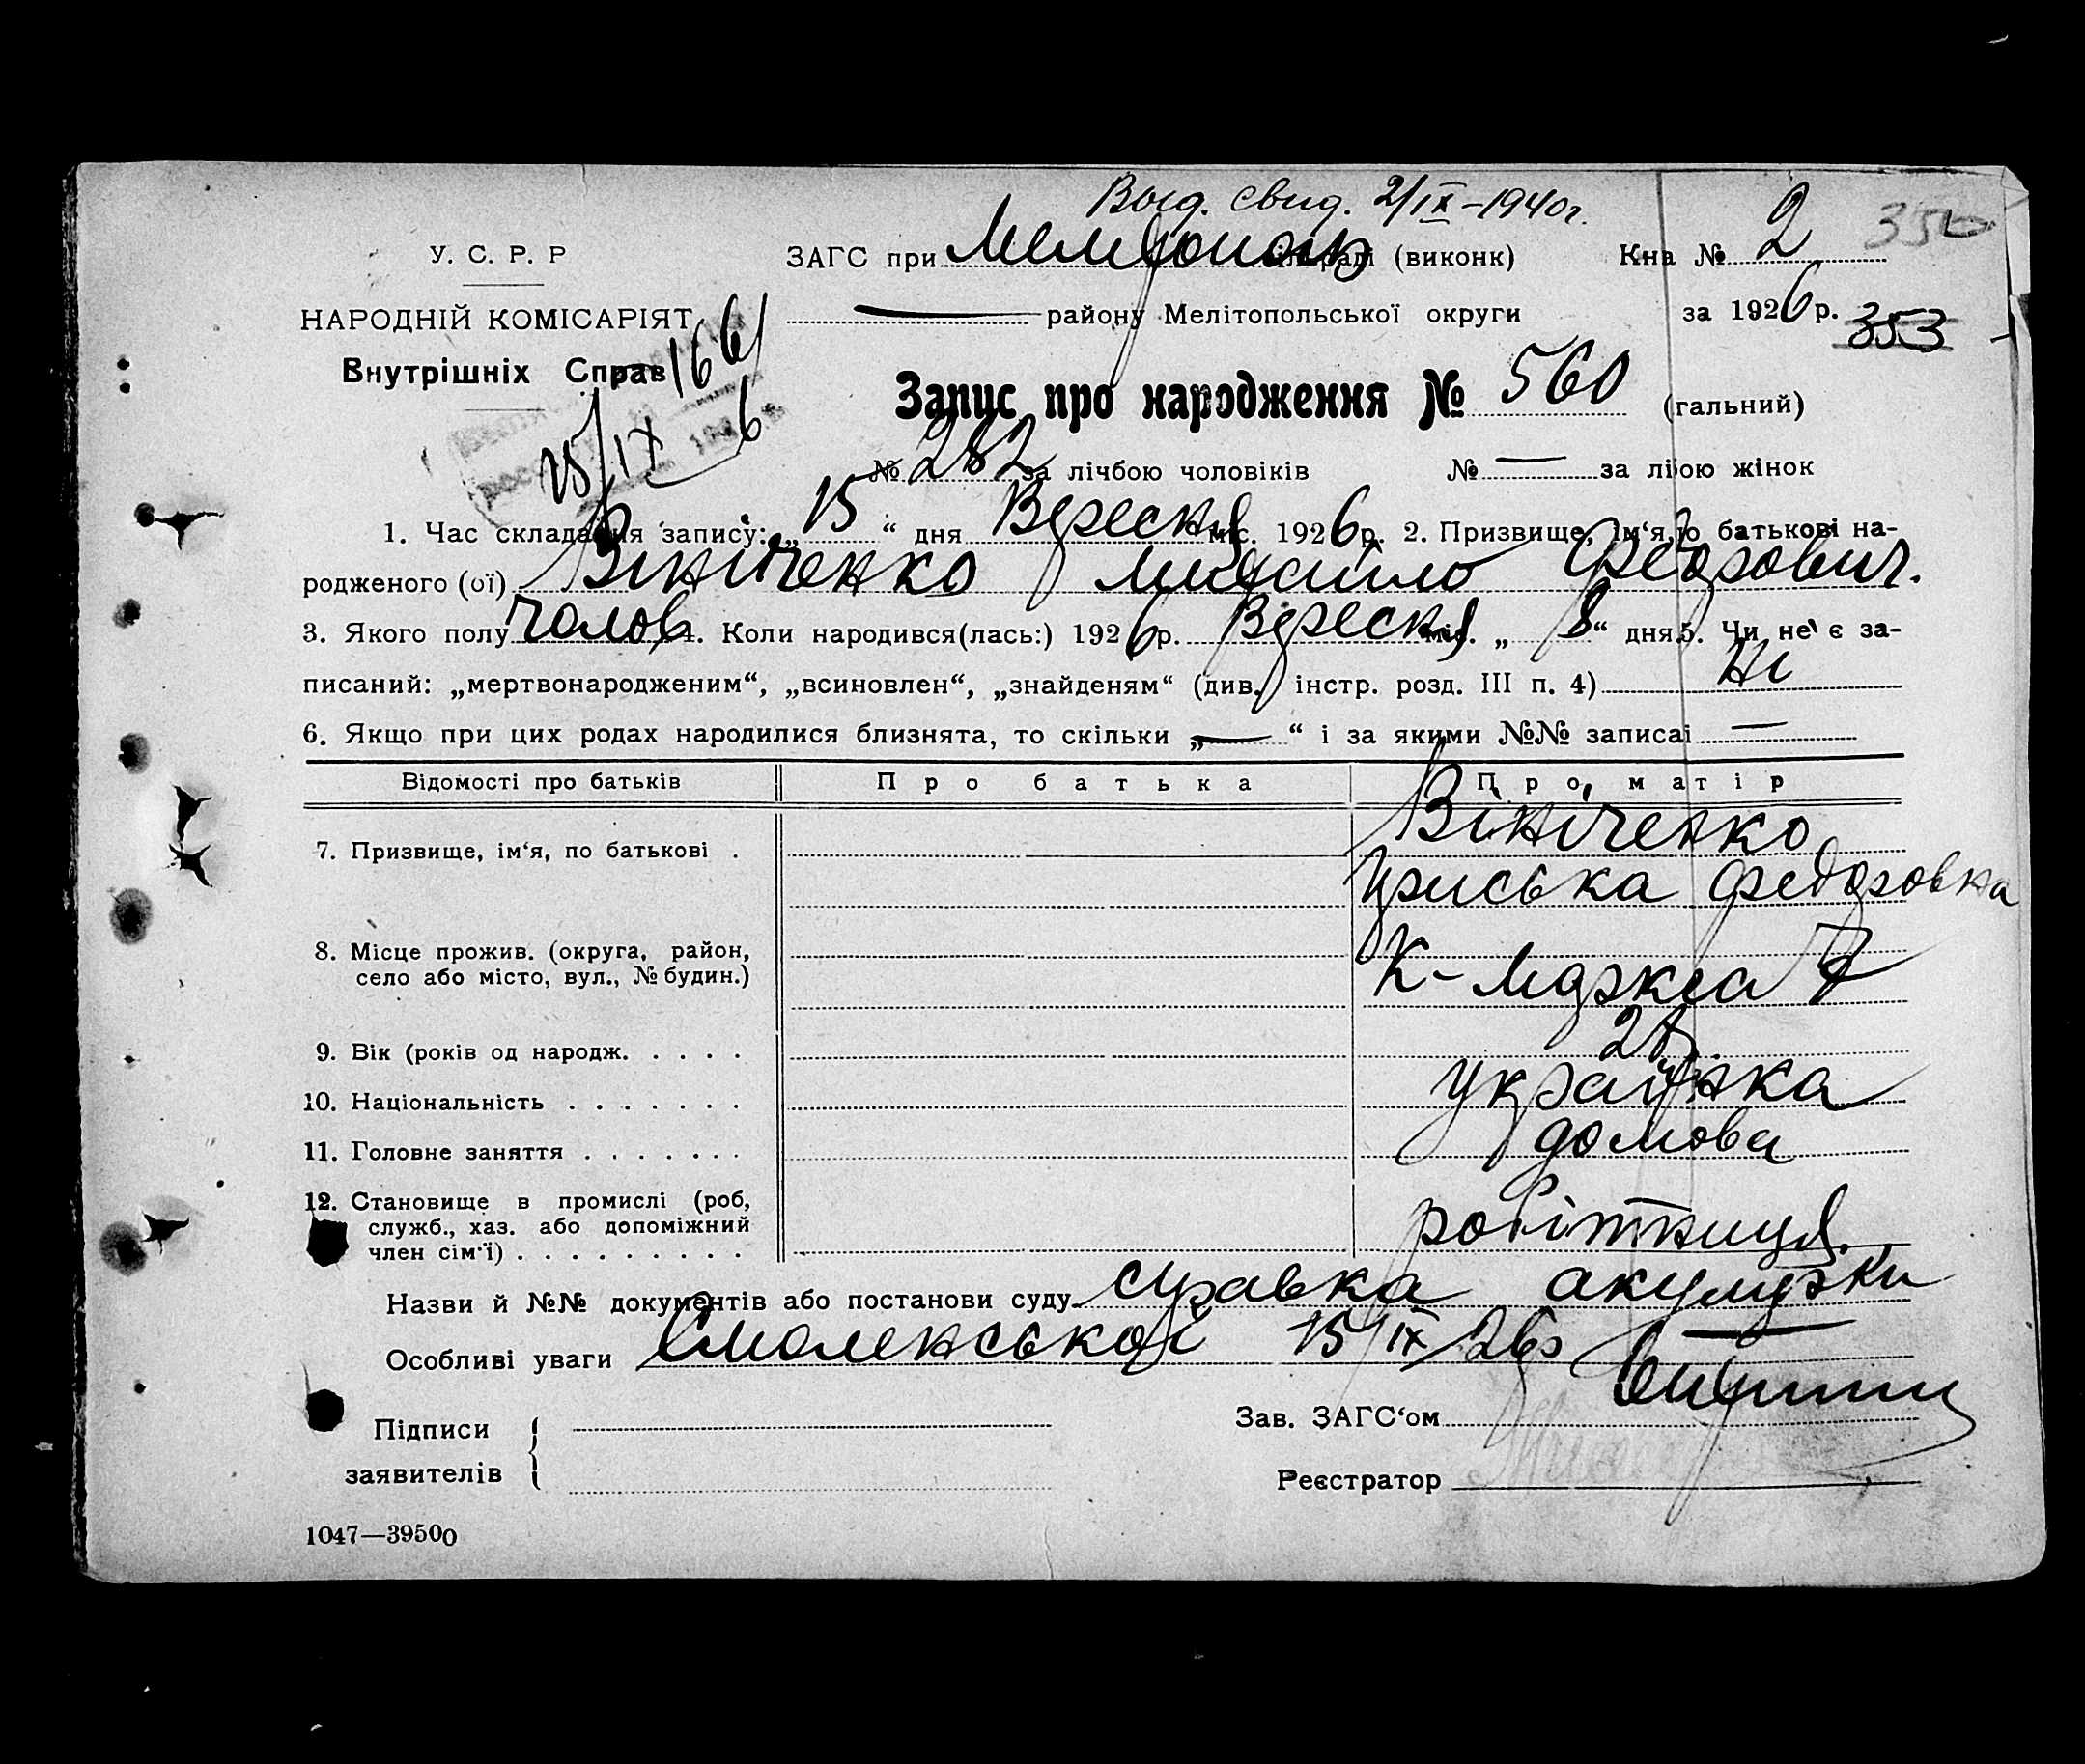 Выд. свид. 2/IX-1940г.
У. С. Р. Р
ЗАГС при Мелітополь сільраді (виконк) Кна № 2 350
НАРОДНІЙ КОМІСАРІЯТ
— району Мелітопольської округи за 1926 р. 353
Внутрішніх Справ 166
Запис про народження № 560 (гальний)
15/IX 6
№ 282 за лічбою чоловіків № — за лібою жінок
1. Час складання запису: „15“ дня Вересня міс. 1926 р. 2. Призвище, ім‘я, по батькові на-
родженого (ої) Вініченко Михайло Федорович.
3. Якого полу чолов 4. Коли народився(лась:) 1926 р. Вересня міс. „8“ дня 5. Чи не є за-
писаний: „мертвонародженим“, „всиновлен“, „знайденям“ (див. інстр. розд. III п. 4) Ні
6. Якщо при цих родах народилися близнята, то скільки „—“ і за якими №№ записаі —
Відомості про батьків Про батька Про матір
7. Призвище, ім‘я, по батькові . Вініченко
Пріська Федоровна
8. Місце прожив. (округа, район,
село або місто, вул., № будин.) К-Маркса 7
9. Вік (років од народж. . . . .
10. Національність . . . . . . . українка
11. Головне заняття . . . . . . . домова
12. Становище в промислі (роб,
служб., хаз. або допоміжний
член сім‘ї) . . . . . . . . . робітниця
Назви й №№ документів або постанови суду справка акушерки
Особливі уваги Смоленської 15/IX 26р
Зав. ЗАГС‘ом
Підписи
заявителів
Реєстратор
1047—39500